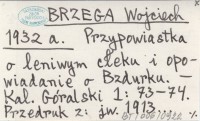 BRZEGA Wojciech
1932 a. Przypowiastka
o leniwym człeku i opo-
wiadanie o Bzdurku. —
Kal. Góralski 1: 73-74.
Przedruk z: jw. 1913.